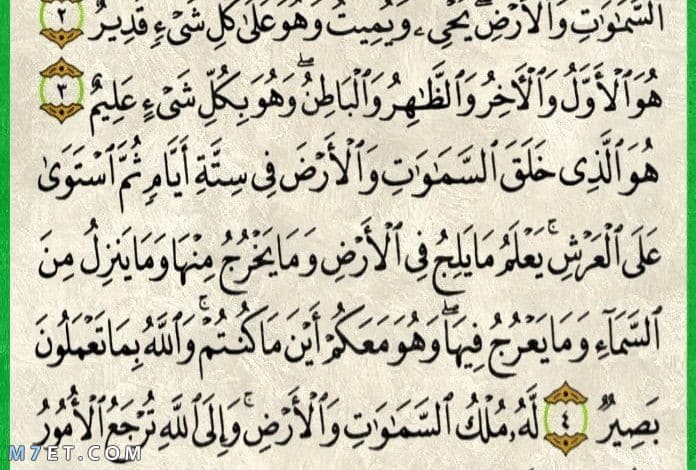 ٱلسَّمَٰوَٰتِ وَٱلْأَرْضِۖ يُحْىِۦ وَيُمِيتُ وَهُوَ عَلَىٰ كُلِّ شَىْءٍ قَدِيرٌ ٢
هُوَ ٱلْأَوَّلُ وَٱلْءَاخِرُ وَٱلظَّٰهِرُ وَٱلْبَاطِنُۖ وَهُوَ بِكُلِّ شَىْءٍ عَلِيمٌ ٣
هُوَ ٱلَّذِى خَلَقَ ٱلسَّمَٰوَٰتِ وَٱلْأَرْضَ فِى سِتَّةِ أَيَّامٍ ثُمَّ ٱسْتَوَىٰ
عَلَى ٱلْعَرْشِۚ يَعْلَمُ مَا يَلِجُ فِى ٱلْأَرْضِ وَمَا يَخْرُجُ مِنْهَا وَمَا يَنزِلُ مِنَ
ٱلسَّمَآءِ وَمَا يَعْرُجُ فِيهَاۖ وَهُوَ مَعَكُمْ أَيْنَ مَا كُنتُمْۚ وَٱللَّهُ بِمَا تَعْمَلُونَ
بَصِيرٌ ٤ لَّهُۥ مُلْكُ ٱلسَّمَٰوَٰتِ وَٱلْأَرْضِۚ وَإِلَى ٱللَّهِ تُرْجَعُ ٱلْأُمُورُ
M7ET.COM